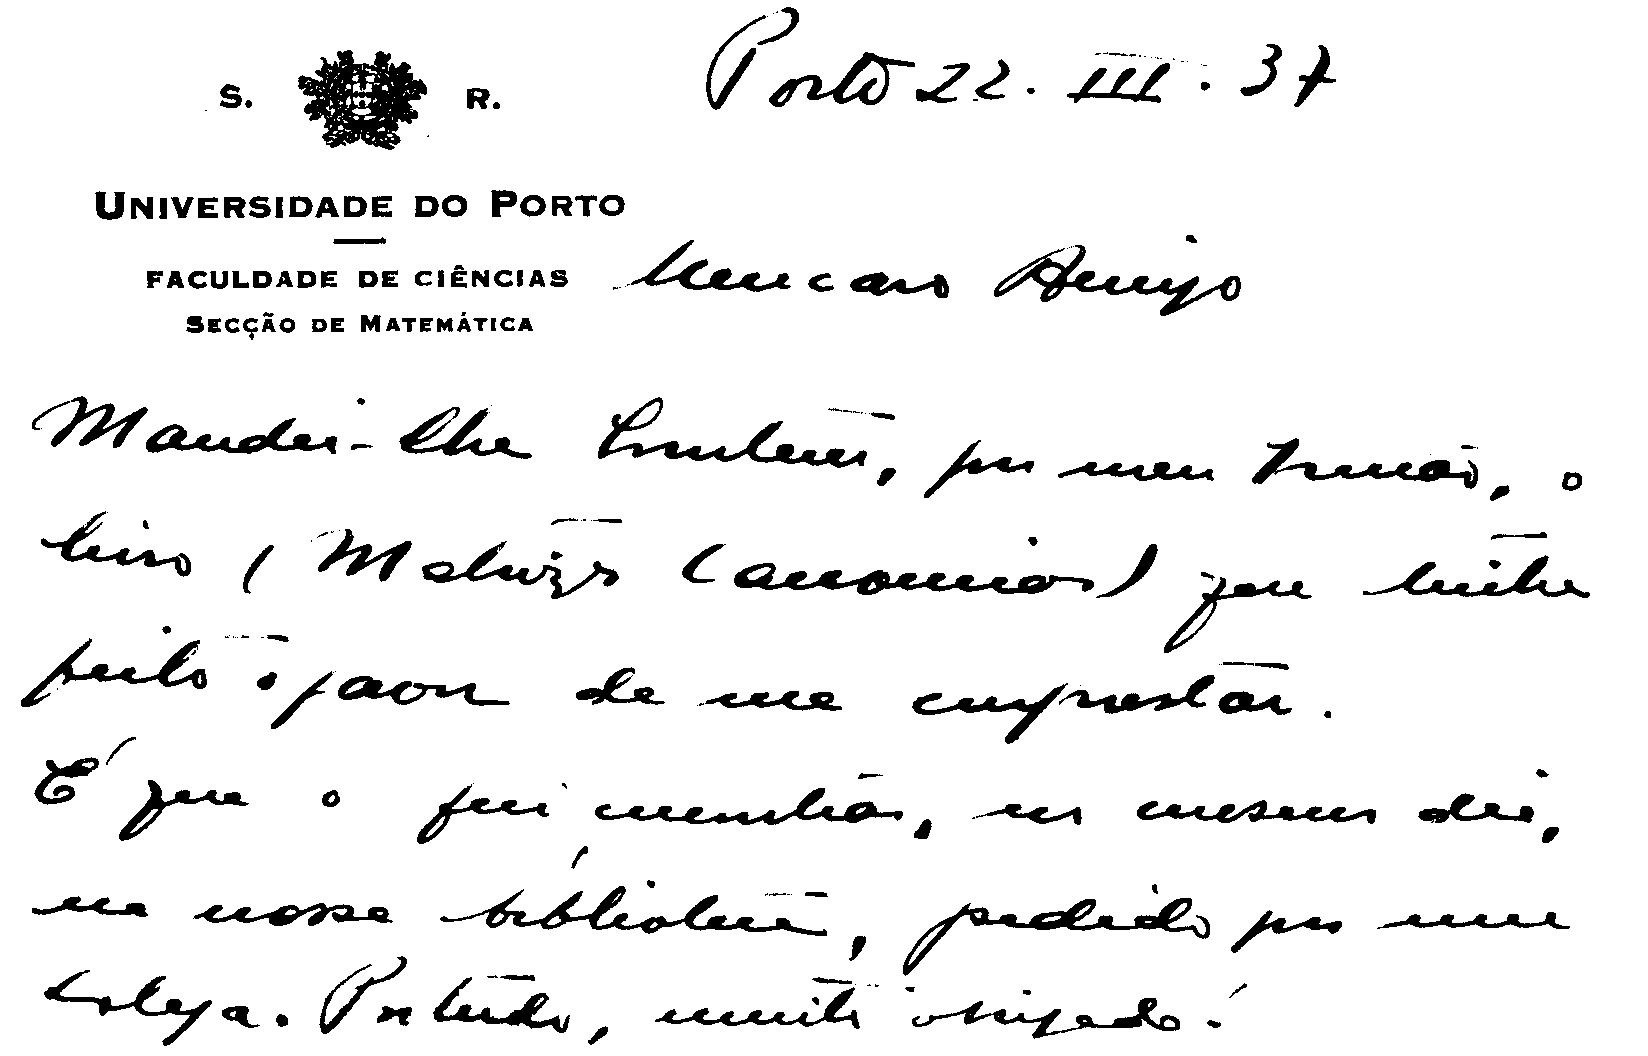 S. R.
Porto 22. III. 37
UNIVERSIDADE DO PORTO
FACULDADE DE CIÊNCIAS
SECÇÃO DE MATEMÁTICA
Meu caro Amigo
Mandei-lhe hontem, por meu Irmão, o
livro (Matrizes Canonicas) que tinha
feito o favor de me emprestar.
É que o fui encontrar, no mesmo dia,
na nossa biblioteca, pedido por um
colega. Por tudo, muito obrigado!